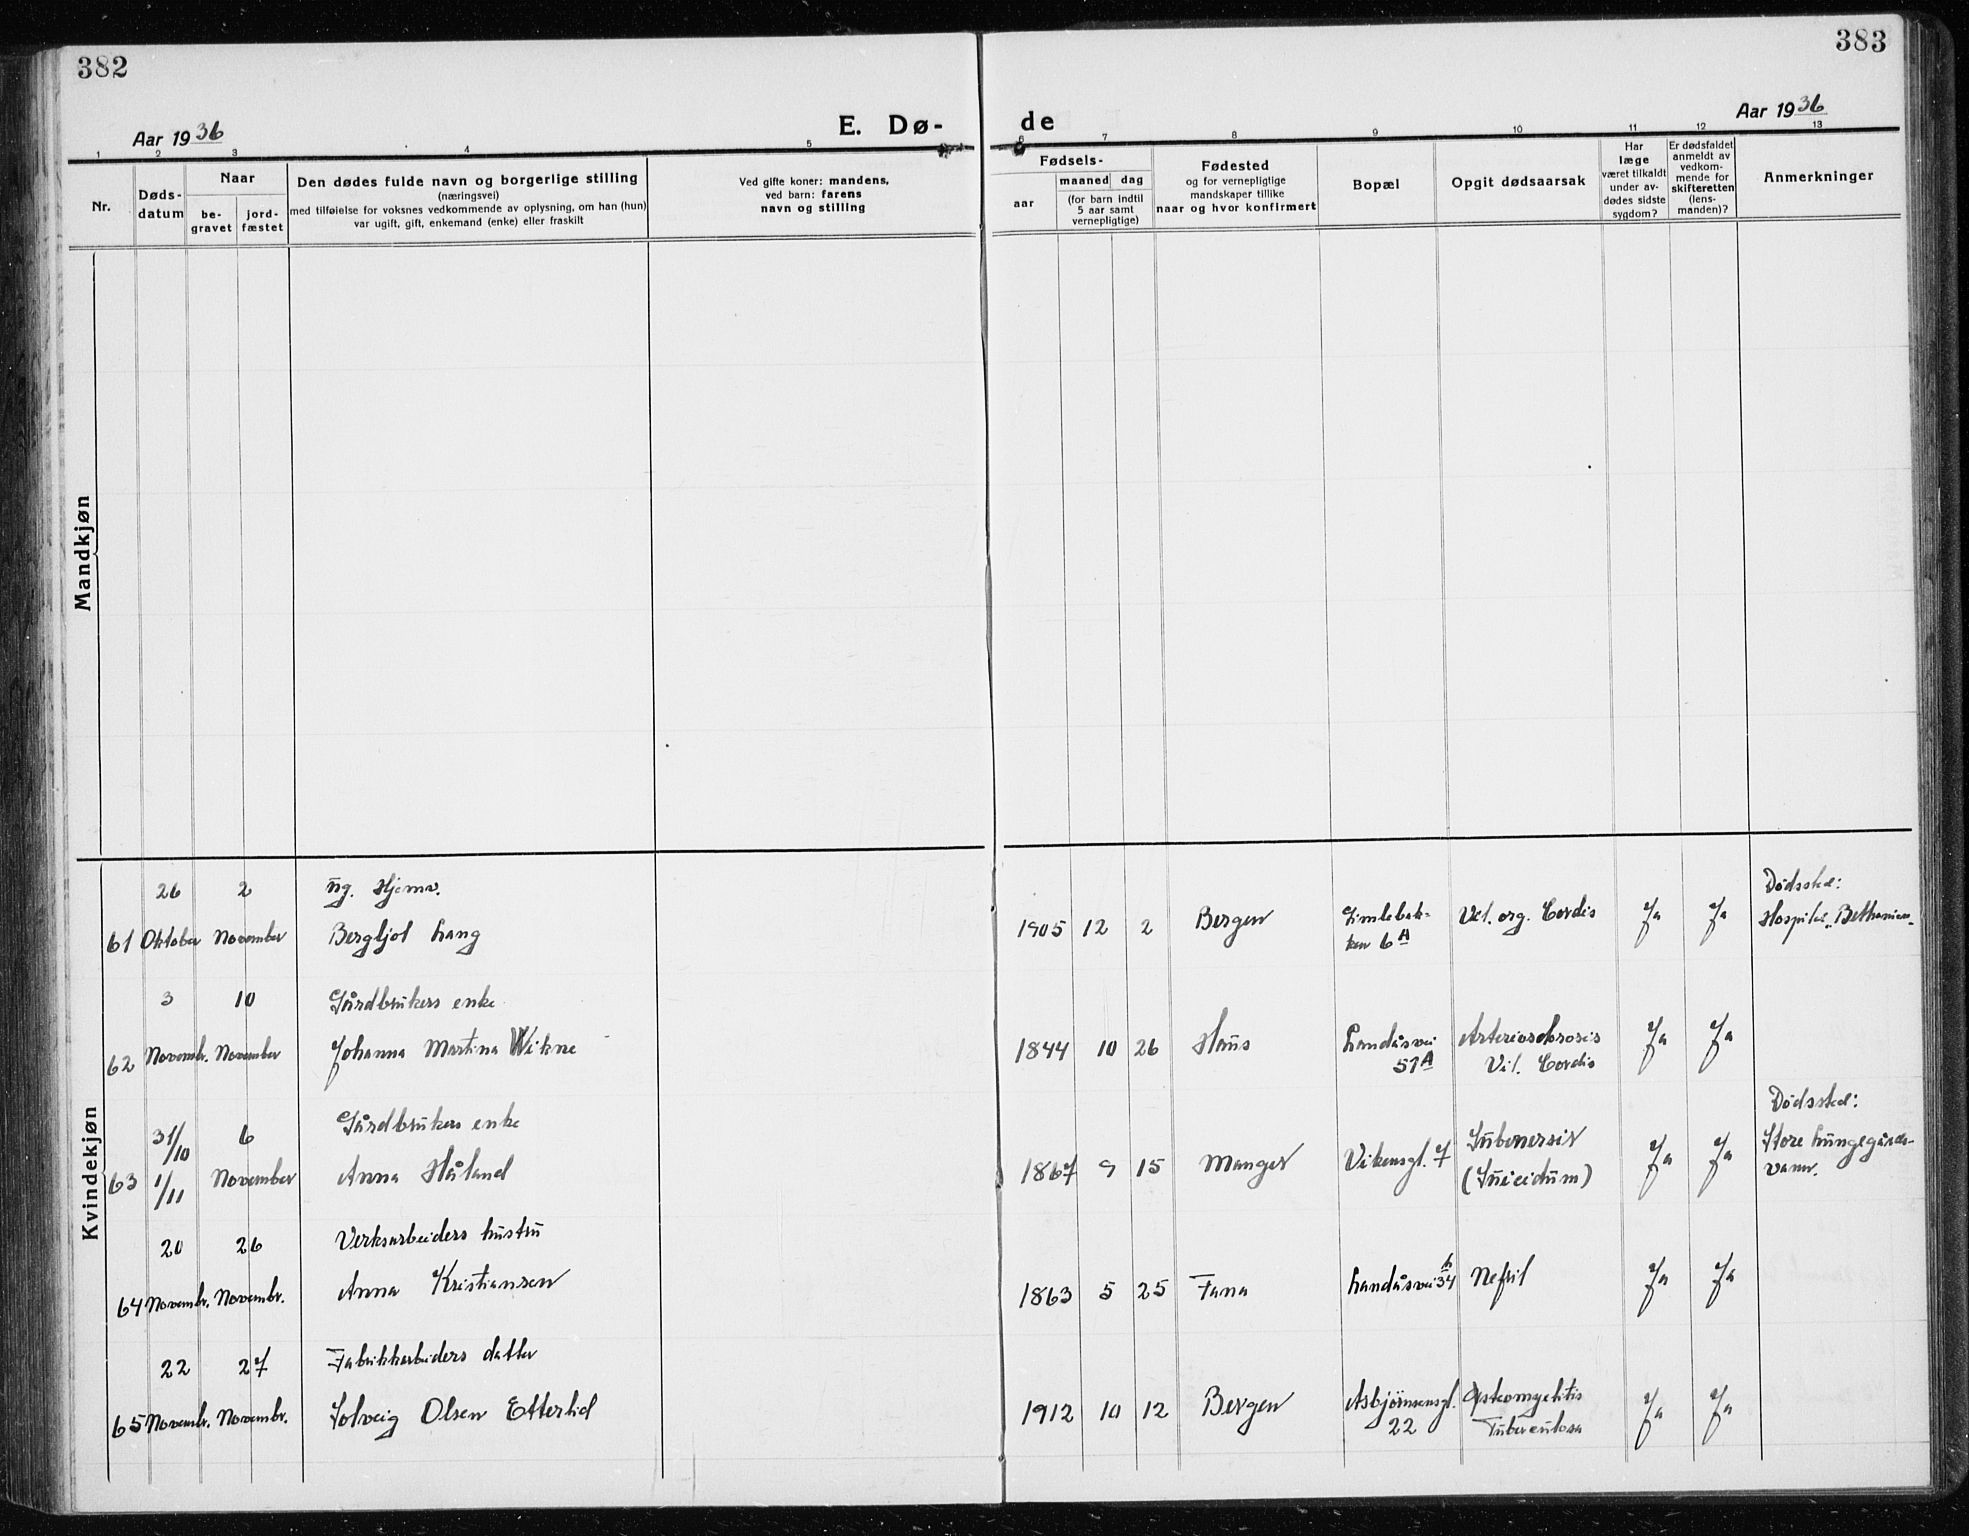 382
383
Aar 1936
E. Dø-
de
Aar 1936
1 2 3 4 5 6 7 8 9 10 11 12 13
Nr.
Døds-
datum
Naar
be-
gravet
jord-
fæstet
Den dødes fulde navn og borgerlige stilling
(næringsvei)
med tilføielse for voksnes vedkommende av oplysning, om han (hun)
var ugift, gift, enkemand (enke) eller fraskilt
Ved gifte koner: mandens,
ved barn: farens
navn og stilling
Fødsels-
aar
maaned
dag
(for barn indtil
5 aar samt
vernepligtige)
Fødested
og for vernepligtige
mandskaper tillike
naar og hvor konfirmert
Bopæl
Opgit dødsaarsak
Har
læge
været tilkaldt
under av-
dødes sidste
sygdom?
Er dødsfaldet
anmeldt av
vedkom-
mende for
skifteretten
(lens-
manden)?
Anmerkninger
Mandkjøn
Kvindekjøn
26 2 ug. Hjemv. Dødssted:
61 Oktober November Bergljot Lang 1905 12 2 Bergen Gimlebak- Vit. org. Cordis Ja Ja Hospital „Bethanien„
ken 6A
3 10 Gårdbrukers enke
62 Novembr. November Johanna Martina Wikne 1844 10 26 Haus Landåsvei Arteriosclerosis Ja Ja
57A Vit. Cordis
31/10 6 Gårdbrukers enke Dødssted:
63 1/11 November Anna Håland 1867 9 15 Manger Vikensgt. 7 Submersio Ja Ja Store Lungegårds-
(Suicidum) vann.
20 26 Verksarbeiders hustru
64 Novembr. Novembr. Anna Kristiansen 1863 5 25 Fana Landåsvei 34 Nefrit Ja Ja
22 27 Fabrikkarbeiders datter
65 Novembr. Novembr. Solveig Olsen Etterlid 1912 10 12 Bergen Asbjørnsensgt. Osteomyelitis Ja Ja
22 Tuberculosa